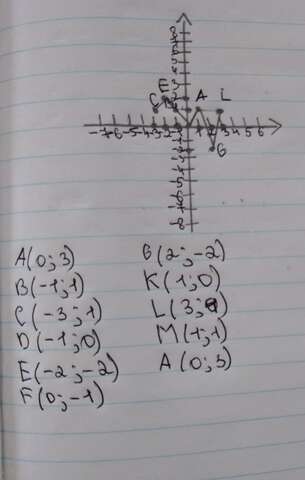 E
C
A
L
-7 6 -5 -4 -3 -2 -1
1 2 3 4 5 6
G
-8
A(0;3)
B(-1;1)
C(-3;1)
D(-1;0)
E(-2;-2)
F(0;-1)
G(2;-2)
K(1;0)
L(3;1)
M(1;1)
A(0;3)